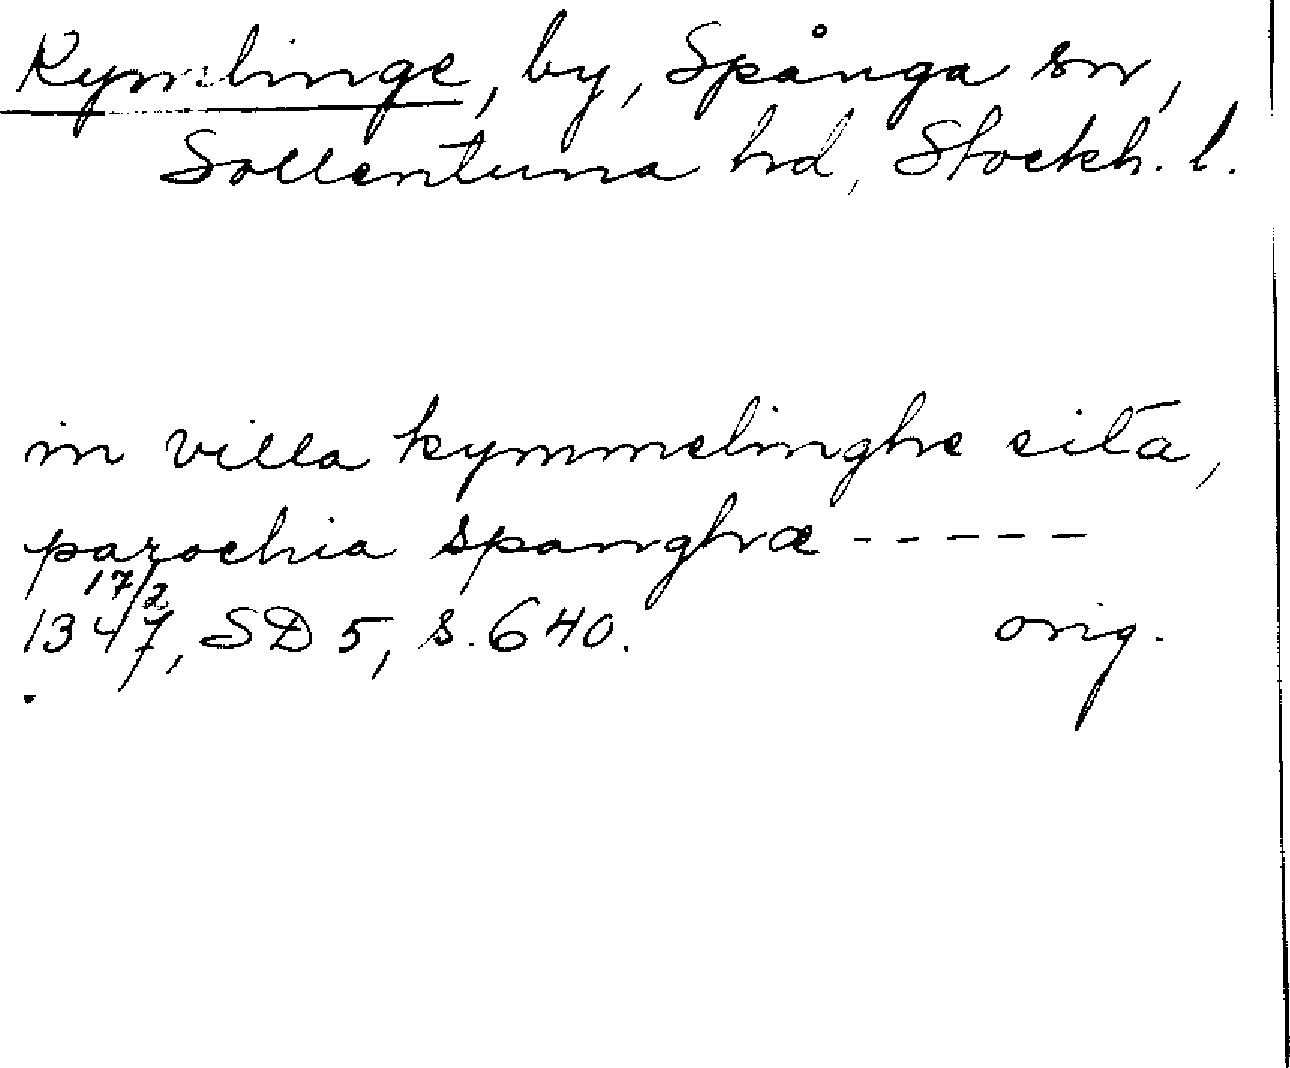 Kymlinge, by, Spånga sn,
Sollentuna hd, Stockh. l.
in villa kymmelinghe sita,
parochia spanghæ -----
17/2
1347, SD 5, s. 640. orig.